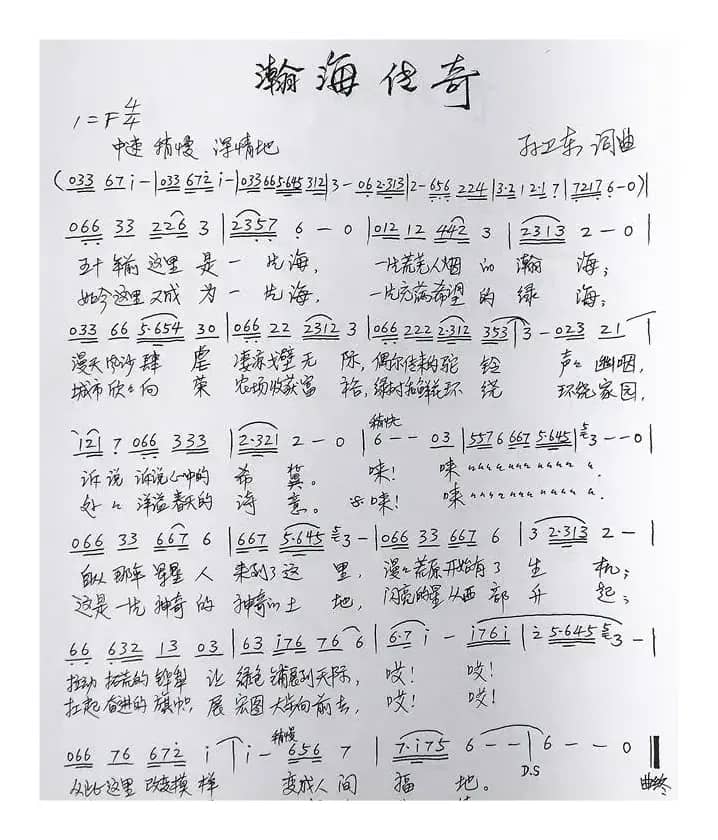 瀚海传奇
1=F 4/4
中速 稍慢 深情地 孙卫东 词曲
(033 67 i-|033 672 i-|033 665·645 312|3-062·313|2-656 224|3·2 12·17|7217 6-0)|
066 33 226 3|2357 6-0|012 12 442 3|2313 2-0|
五十年前这里是一片海, 一片荒芜人烟的瀚海;
如今这里又成为一片海, 一片充满希望的绿海;
033 66 5·654 30|066 22 2312 3|066 222 2·312 353|3-023 21
漫天风沙肆虐 凄凉戈壁无际, 偶尔传来的驼铃 声声幽咽,
城市欣欣向荣 农场收获富裕, 绿树和鲜花环绕 环绕家园,
121 7 066 333|2·321 2-0|6--03|5576 667 5·645|3--0|
稍快
诉说诉说心中的希冀。 唻! 唻
处处洋溢春天的诗意。 唻! 唻
066 33 667 6|667 5·645 3-|066 33 667 6|3 2·313 2-|
自从那年 星星人来到了这里, 漫漫荒原开始有了生机;
这是一片神奇的神奇的土地, 闪亮的星从西部升起;
66 632 13 03|63 i76 76 6|6·7 i-i76i|2 5·645 3-|
拉动拓荒的铧犁 让绿色铺展到天际, 哎! 哎!
扛起奋进的旗帜, 展宏图大步向前去, 哎! 哎!
稍慢
066 76 672 i|i-656 7|7·i75 6--|6--0‖
D.S
从此这里改变模样 变成人间福地。 曲终